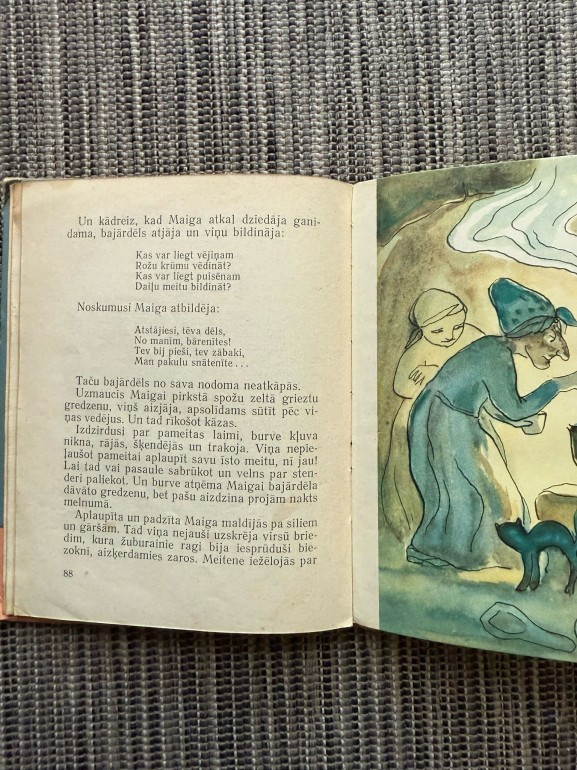 Un kādreiz, kad Maiga atkal dziedāja gani-
dama, bajārdēls atjāja un viņu bildināja:
Kas var liegt vējiņam
Rožu krūmu vēdināt?
Kas var liegt puisēnam
Daiļu meitu bildināt?
Noskumusi Maiga atbildēja:
Atstājiesi, tēva dēls,
No manim, bārenītes!
Tev bij pieši, tev zābaki,
Man pakulu snātenīte...
Taču bajārdēls no sava nodoma neatkāpās.
Uzmaucis Maigai pirkstā spožu zeltā grieztu
gredzenu, viņš aizjāja, apsolīdams sūtīt pēc vi-
ņas vedējus. Un tad rīkošot kāzas.
Izdzirdusi par pameitas laimi, burve kļuva
nikna, rājās, šķendējās un trakoja. Viņa nepie-
ļaušot pameitai aplaupīt savu īsto meitu, nī jau!
Lai tad vai pasaule sabrūkot un velns par sten-
deri paliekot. Un burve atņēma Maigai bajārdēla
dāvāto gredzenu, bet pašu aizdzina projām nakts
melnumā.
Aplaupīta un padzīta Maiga maldījās pa siliem
un gāršām. Tad viņa nejauši uzskrēja virsū brie-
dim, kura žuburainie ragi bija iesprūduši bie-
zokni, aizķerdamies zaros. Meitene iežēlojās par
88